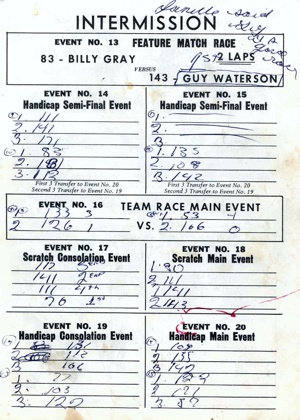 INTERMISSION
said
EVENT NO. 13 FEATURE MATCH RACE
83 - BILLY GRAY
2 LAPS
VERSUS
143 - GUY WATERSON
EVENT NO. 14
Handicap Semi-Final Event
1. 111
2. 141
3. 171
1. 83
2. 181
3. 112
First 3 Transfer to Event No. 20
Second 3 Transfer to Event No. 19
EVENT NO. 15
Handicap Semi-Final Event
1.
2.
3.
1. 135
2. 108
3. 142
First 3 Transfer to Event No. 20
Second 3 Transfer to Event No. 19
EVENT NO. 16 TEAM RACE MAIN EVENT
1. 133 3
2. 126 1
VS.
1. 53 4
2. 106 0
EVENT NO. 17
Scratch Consolation Event
141 2
111 4th
76 1st
EVENT NO. 18
Scratch Main Event
1. 80
2. 111
EVENT NO. 19
Handicap Consolation Event
2. 112
3. 106
1. 77
2. 103
3. 122
EVENT NO. 20
Handicap Main Event
1. 108
2. 135
3. 142
1. 124